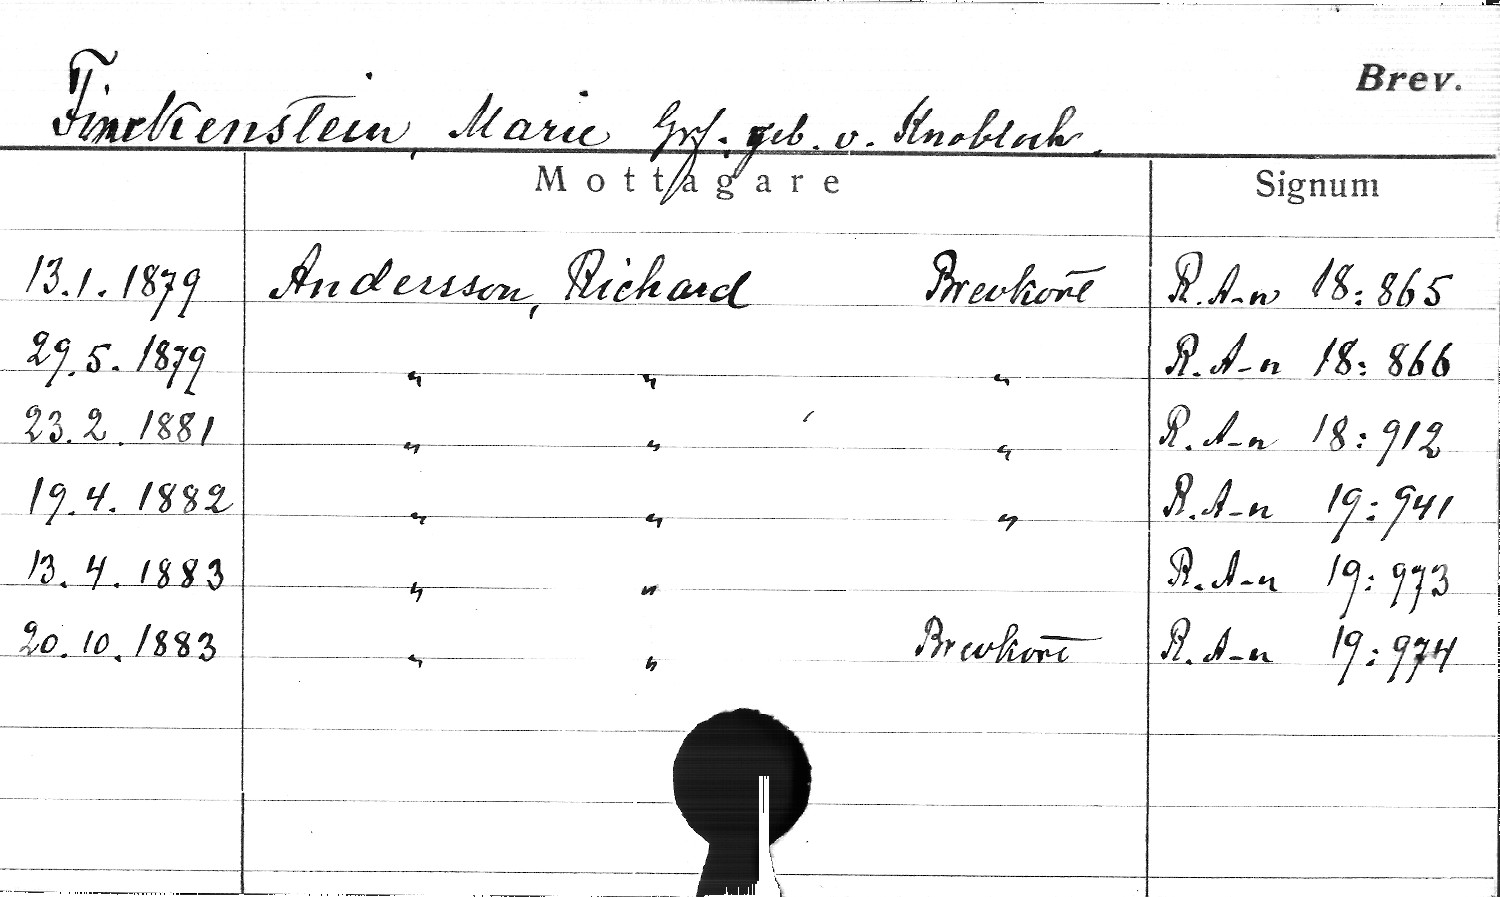 Brev.
Finckenstein, Marie Grf. geb. v. Knobloch.
Mottagare Signum
13.1.1879 Andersson, Richard Brevkort R. A-n 18:865
29.5.1879 " " " R. A-n 18:866
23.2.1881 " " " R. A-n 18:912
19.4.1882 " " " R. A-n 19:941
13.4.1883 " " R. A-n 19:973
20.10.1883 " " Brevkort R. A-n 19:974